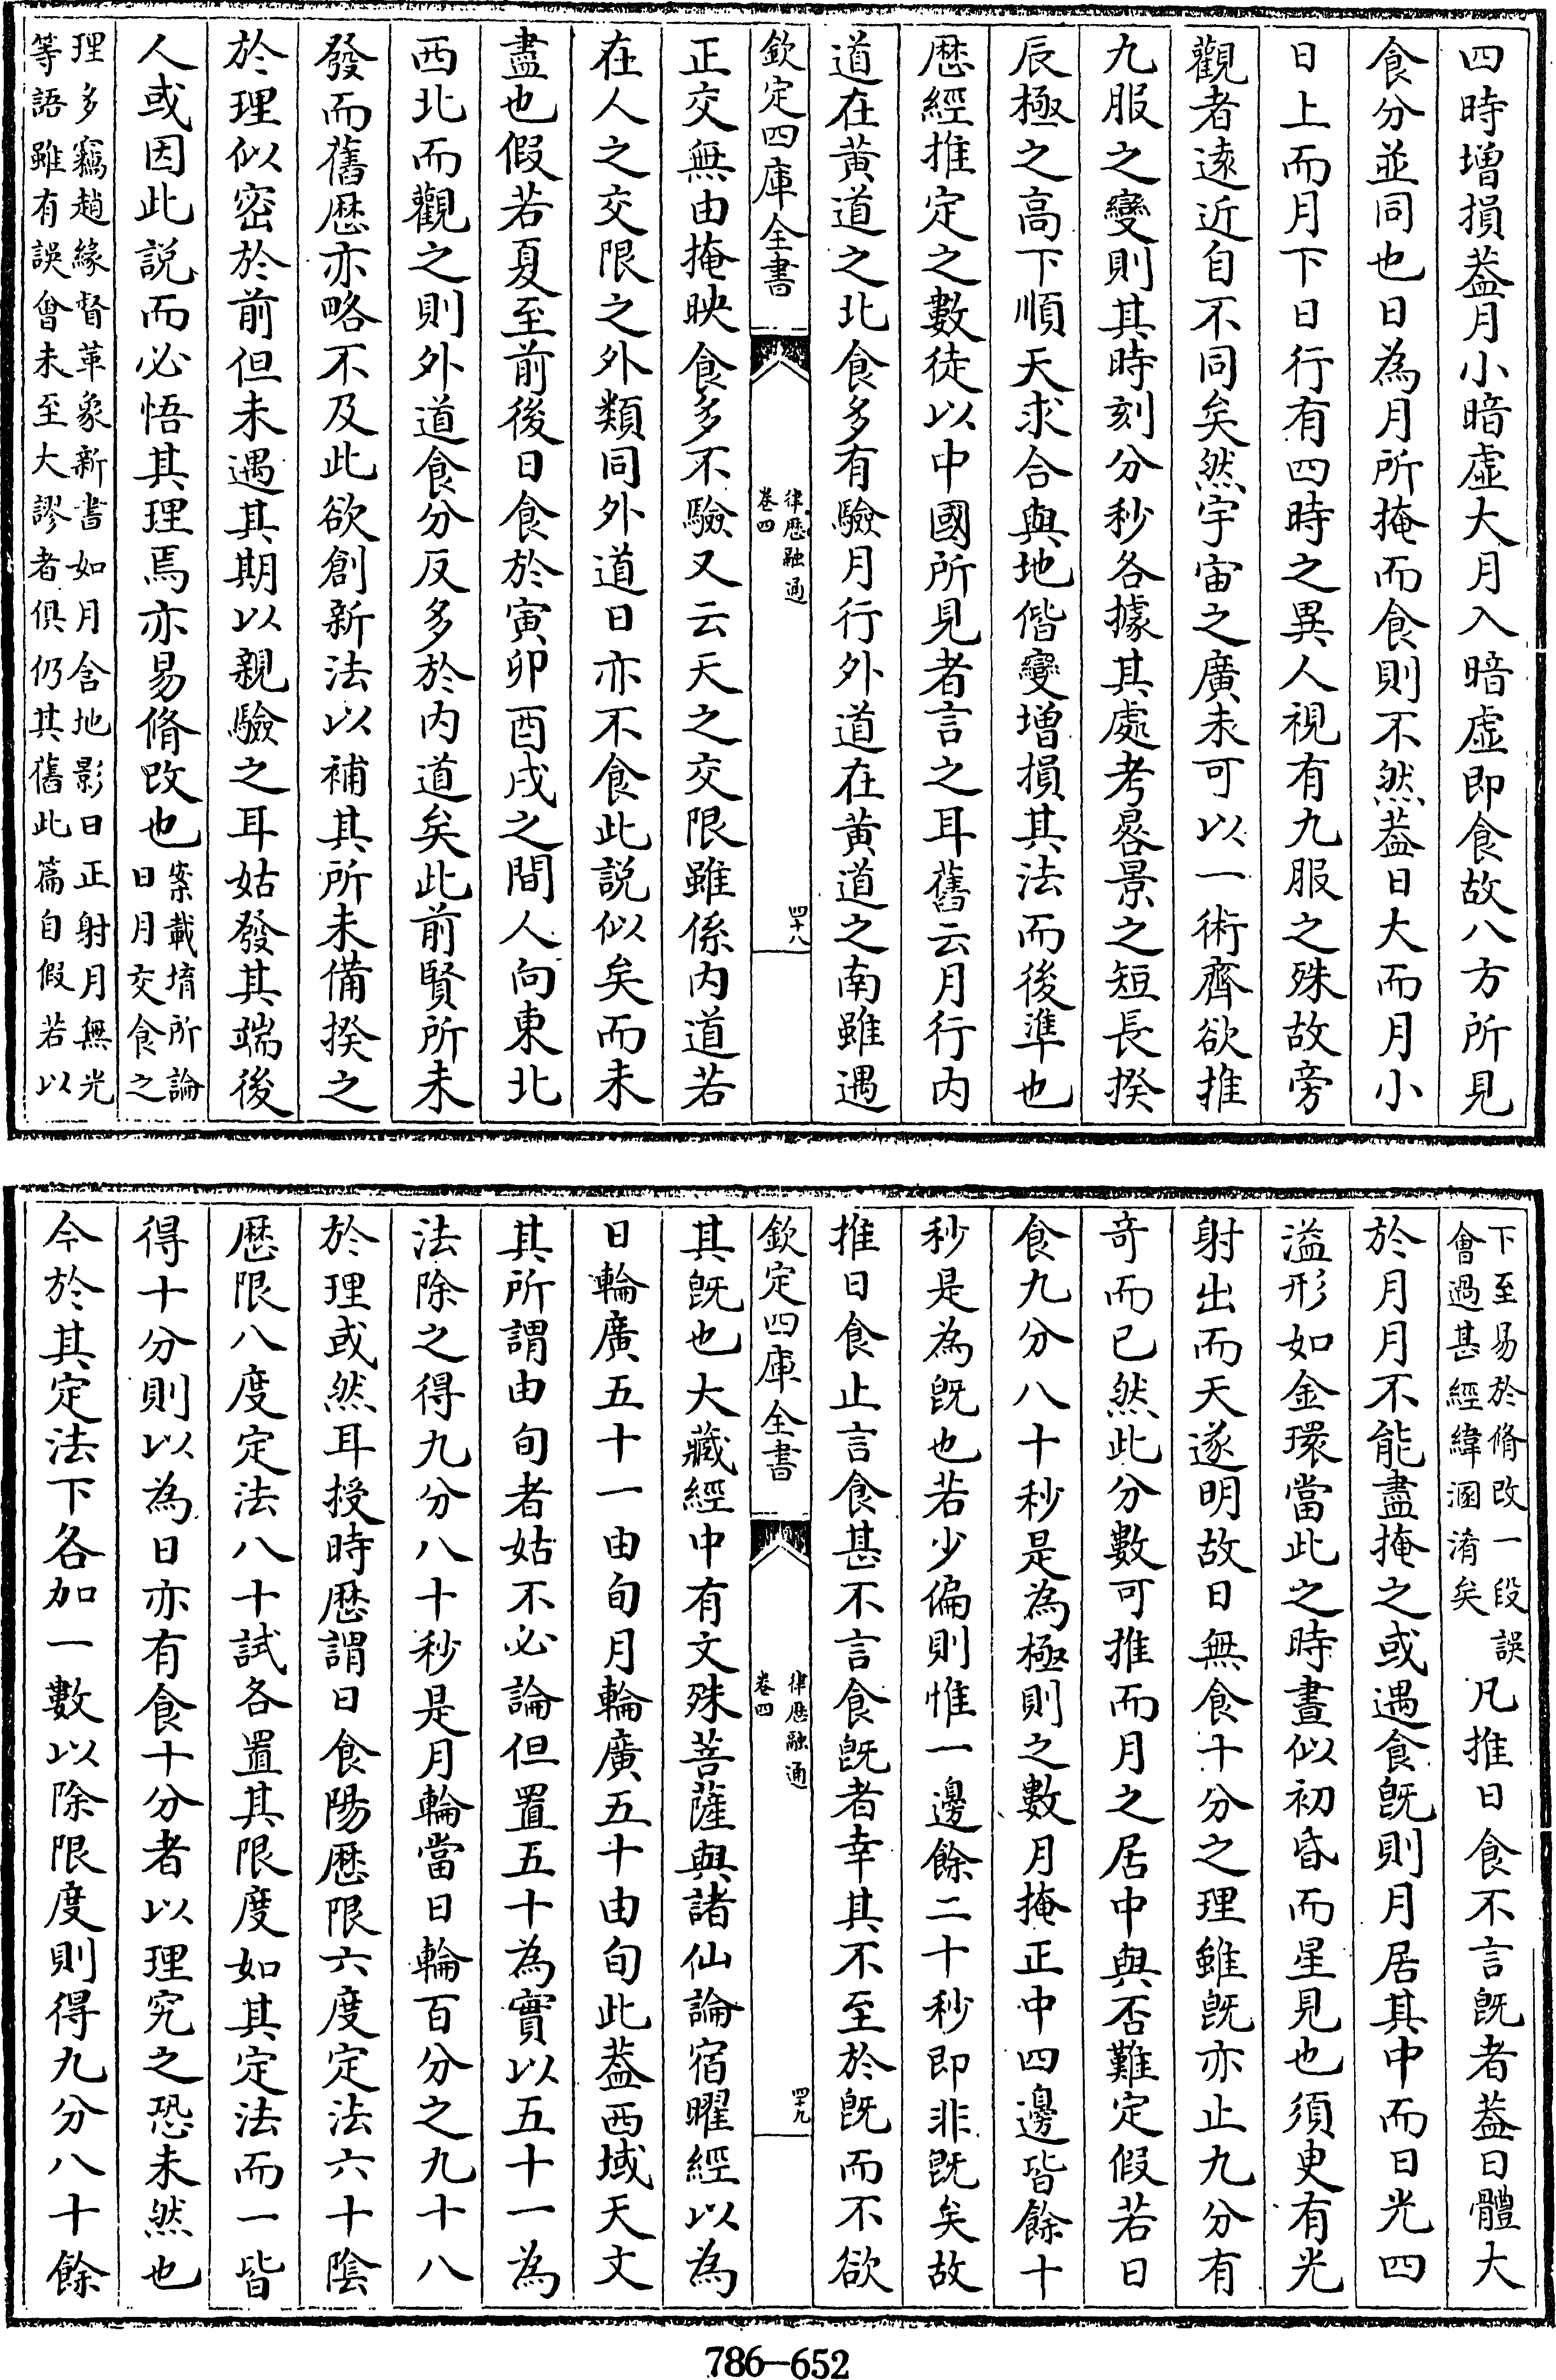 四時增損葢月小暗虛大月入暗虛即食故八方所見
食分並同也日為月所掩而食則不然葢日大而月小
日上而月下日行有四時之異人視有九服之殊故旁
觀者逺近自不同矣然宇宙之廣未可以一術齊欲推
九服之變則其時刻分秒各據其處考晷景之短長揆
辰極之高下順天求合與地偕變增損其法而後準也
厯經推定之數徒以中國所見者言之耳舊云月行内
道在黄道之北食多有驗月行外道在黄道之南雖遇
欽定四庫全書
律厯融通
卷四
四十八
正交無由掩映食多不驗又云天之交限雖係内道若
在人之交限之外類同外道日亦不食此説似矣而未
盡也假若夏至前後日食於寅卯酉戌之間人向東北
西北而觀之則外道食分反多於内道矣此前賢所未
發而舊厯亦略不及此欲創新法以補其所未備揆之
於理似密於前但未遇其期以親驗之耳姑發其端後
人或因此説而必悟其理焉亦易脩改也
案載堉所論
日月交食之
理多竊趙緣督革象新書如月含地影日正射月無光
等語雖有誤會未至大謬者俱仍其舊此篇自假若以
下至易於脩改一段誤
會過甚經緯溷淆矣
凡推日食不言旣者葢日體大
於月月不能盡掩之或遇食旣則月居其中而日光四
溢形如金環當此之時晝似初昏而星見也須臾有光
射出而天遂明故日無食十分之理雖旣亦止九分有
奇而已然此分數可推而月之居中與否難定假若日
食九分八十秒是為極則之數月掩正中四邊皆餘十
秒是為旣也若少偏則惟一邊餘二十秒即非旣矣故
推日食止言食甚不言食旣者幸其不至於旣而不欲
欽定四庫全書
律厯融通
卷四
四十九
其旣也大藏經中有文殊菩薩與諸仙論宿曜經以為
日輪廣五十一由旬月輪廣五十由旬此葢西域天文
其所謂由旬者姑不必論但置五十為實以五十一為
法除之得九分八十秒是月輪當日輪百分之九十八
於理或然耳授時厯謂日食陽厯限六度定法六十陰
厯限八度定法八十試各置其限度如其定法而一皆
得十分則以為日亦有食十分者以理究之恐未然也
今於其定法下各加一數以除限度則得九分八十餘
786—652